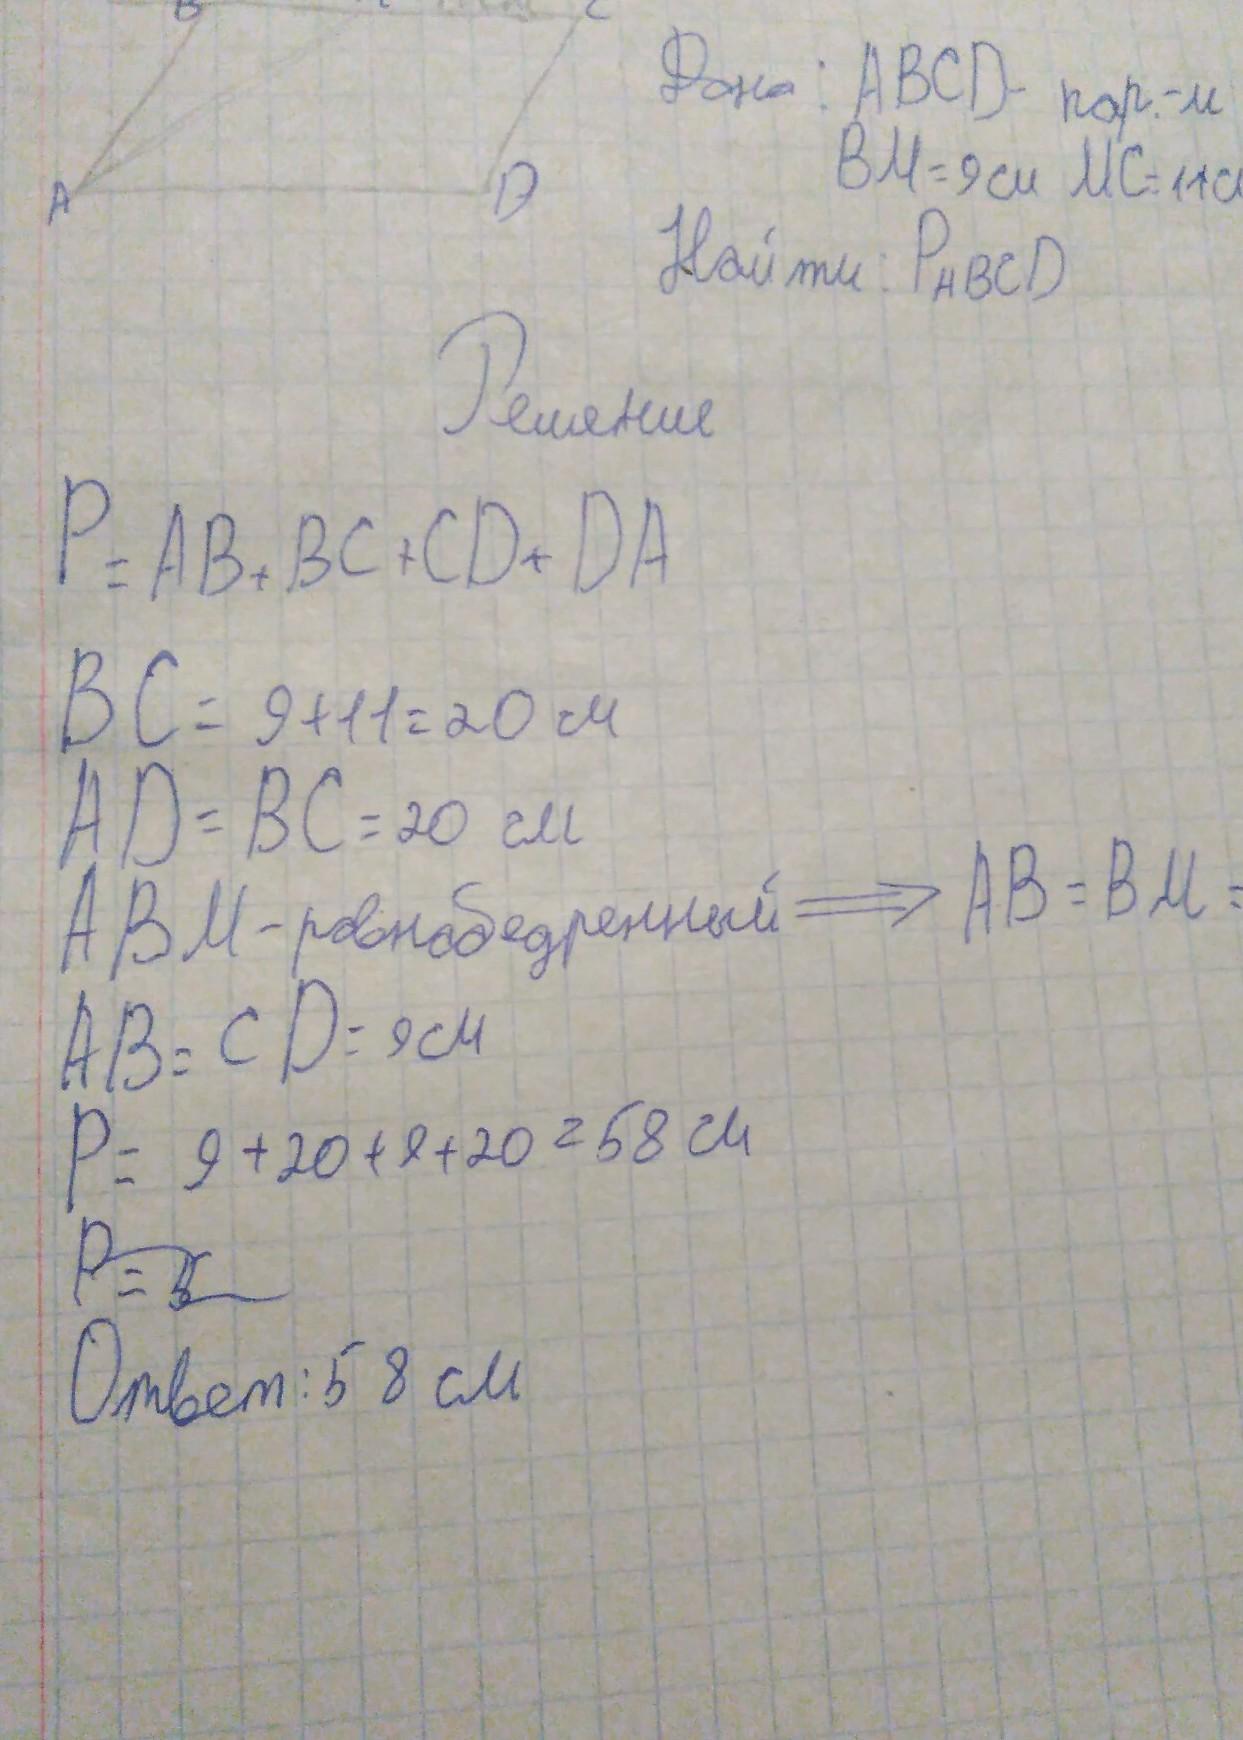 B C
A D
Дано: ABCD - пар.-м
BM = 9 см MC = 11 с
Найти: PABCD
Решение
P = AB + BC + CD + DA
BC = 9 + 11 = 20 см
AD = BC = 20 см
ABM - равнобедренный ⟹ AB = BM =
AB = CD = 9 см
P = 9 + 20 + 9 + 20 = 58 см
P =
Ответ: 58 см